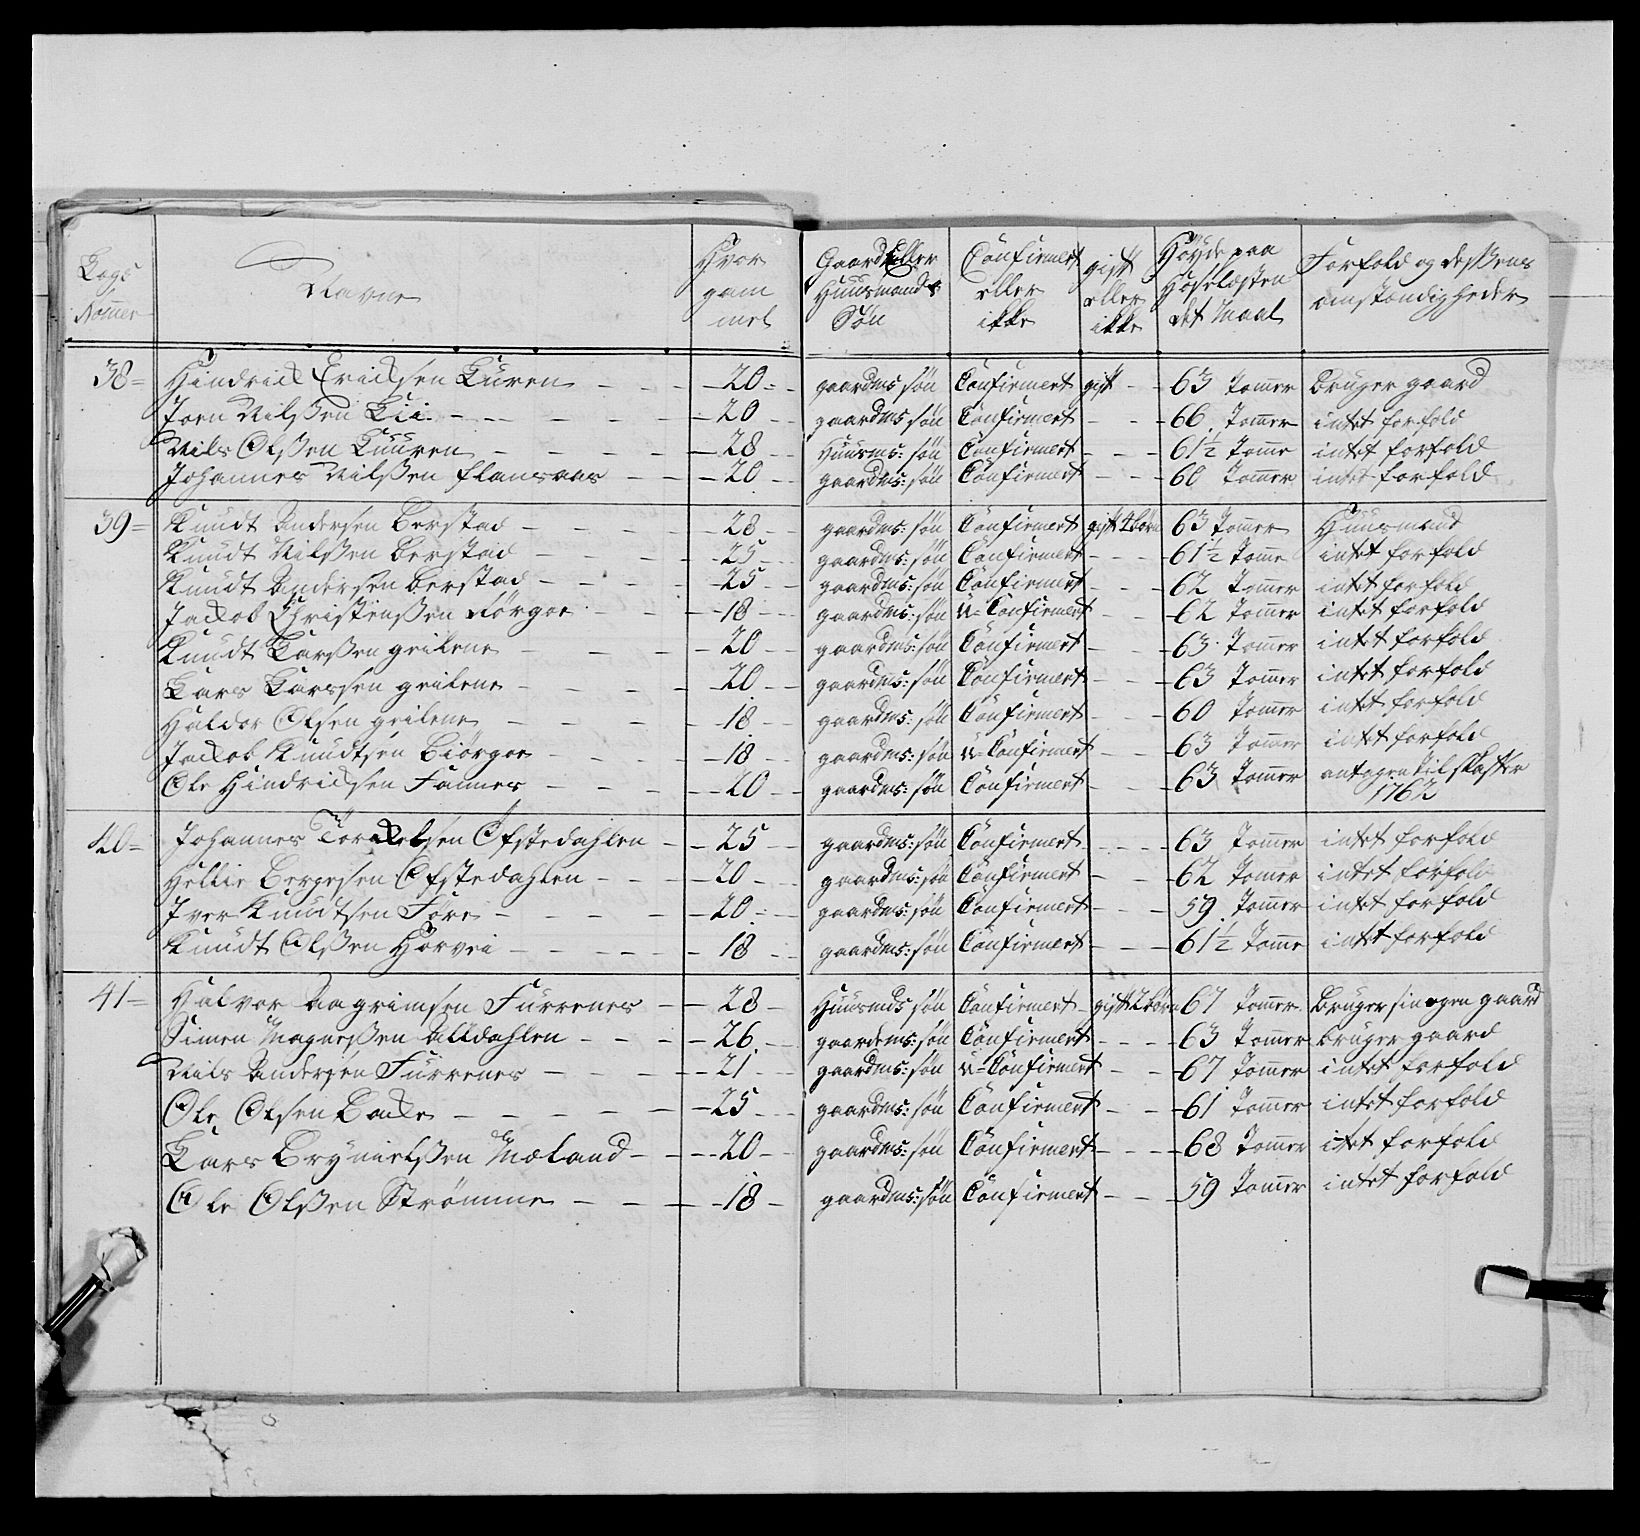 Lægs Nomer | Navne | Hvor gam mel | Gaard Eller Huusmands Søn | Confirmert eller ikke | gift eller ikke | Høyde paa Hoselæsten det Maal | Forfald og desßens omstændigheder
38 = Hindrick Ericksen Luren - - - 20 - gaardms søn Confirmert gift - - 63 Tomer bruger gaard
Joen Nilsßen Lii - - - 20 - gaardms søn Confirmert - - 66 Tomer intet forfald
Nils Olsßen Luuren - - - 28 - Huusms: søn Confirmert - - 61½ Tome intet forfald
Johannes Nilsßen - - 20 - gaardms: søn Confirmert - - 60 Tomer intet forfald
39 = Knudt Andersen Berstad - - - 28 - gaardms: søn Confirmert gift 2 børn 63 Tomer Huusmand
Knudt Nilsßen Berstad - - - 25 - gaardms: søn Confirmert - - 61½ Tome intet forfald
Knudt Andersen Berstad - - - 25 - gaardms: søn Confirmert - - 62 Tomer intet forfald
Jackob Christensßen - - - 18 - gaardms: søn u=Confirmert - - 62 Tomer intet forfald
Knudt Larsßen geilene - - - 20 - gaardms: søn Confirmert - - 63 Tomer intet forfald
Lars Larssen geilene - - - 20 - gaardms: søn Confirmert - - 63 Tomer intet forfald
Haldor Olsen geilene - - - 18 - gaardms: søn Confirmert - - 60 Tomer intet forfald
Jackob Knudtsen Biørgoe - - - 18 - gaardms: søn u=Confirmert - - 63 Tomer intet forfald
Ole Hindricksen Fannes - - - 20 - gaardms: søn Confirmert - - 63 Tomer antagen til skatter
1762
40 = Johannes Torckelsen Ofstedahlen - 25 - gaardms: søn Confirmert - - 63 Tomer intet forfald
Hellie Bergesen Ofstedahlen - - 20 - gaardms: søn Confirmert - - 62 Tomer intet forfald
Iver Knudtsen Føre - - - 20 - gaardms: søn Confirmert - - 59 Tomer intet forfald
Knudt Olsßen Horvei - - - 18 - gaardms: søn Confirmert - - 61½ Tome intet forfald
41 = Halvor Aagrimsen Furrenes - 28 - Huusmds søn Confirmert - gift 2 børn 67 Tomer bruger sin egen gaard
Simen Magnesßen alldahlen - - - 26 - gaardems: søn Confirmert - - 63 Tomer bruger gaard
Nils Andersen Furrenes - - - 21 - gaardms: søn u=Confirmert - - 67 Tomer intet forfald
Ole Olsen Backe - - - 25 - gaardms: søn Confirmert - - 61 Tomer intet forfald
Lars Brynielsßen Mæland - - - 20 - gaardms: søn Confirmert - - 68 Tomer itet forfald
Ole Olsßen Strømme - - - 18 - gaardms: søn Confirmert - - 59 Tomer intet forfald